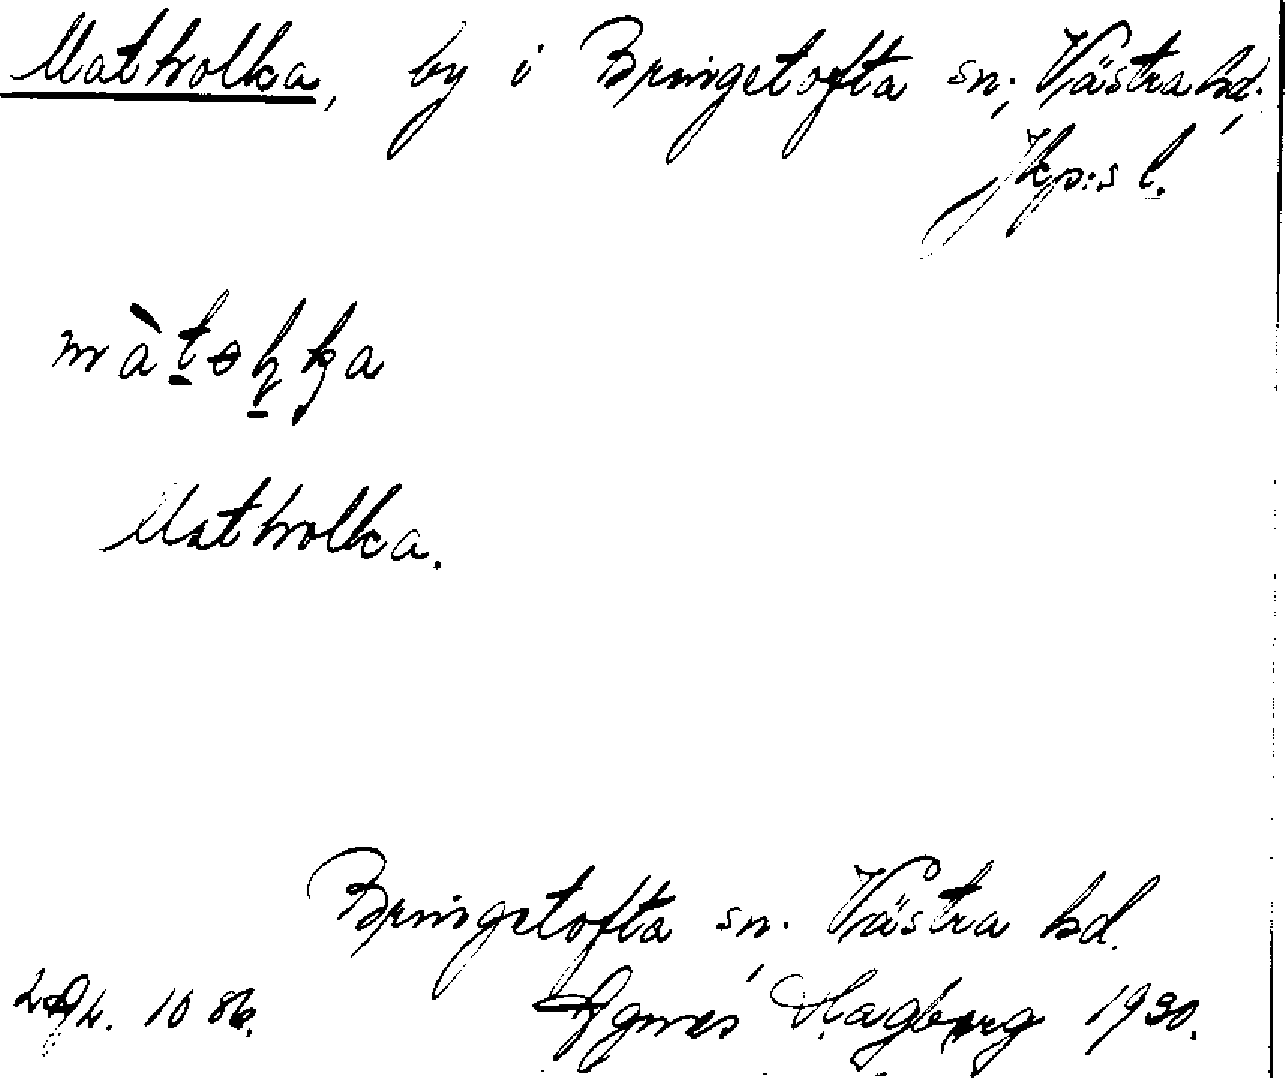 Matholka, by i Bringetofta sn, Västra hd,
Jkp:s l.
Matholka.
Bringetofta sn. Västra hd.
Agnes Hagberg 1930.